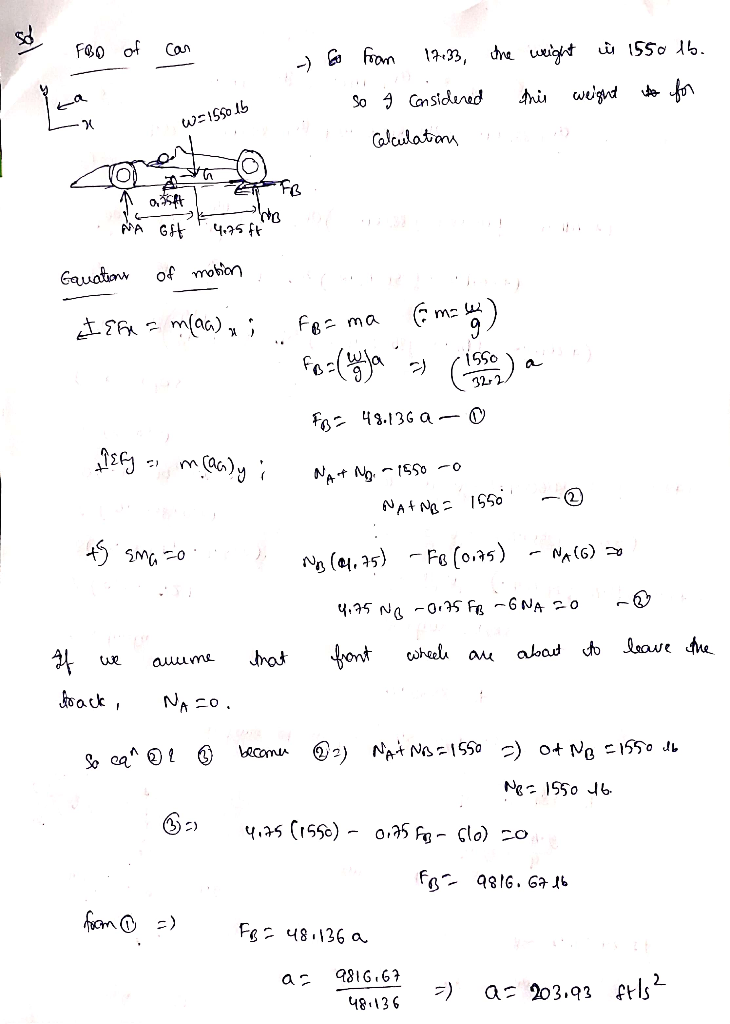 Sol
FBD of Car
→) So from 17.33, the weight is 1550 lb.
So I Considered this weight for
Calculations
y
a
x
W=1550 lb
G
FB
0.75ft
NA 6ft 4.75 ft NB
Equations of motion
← + ΣFx = m(aG)x ; FB = ma (∵ m = w/g)
FB = (w/g)a ⇒ (1550/32.2) a
FB = 48.136 a — ①
+↑ΣFy = m(aG)y ; NA + NB - 1550 = 0
NA + NB = 1550 — ②
+↺ ΣMG = 0 NB (4.75) - FB (0.75) - NA(6) = 0
4.75 NB - 0.75 FB - 6NA = 0 — ③
If we assume that front wheels are about to leave the
track, NA = 0.
So eqn ② & ③ becomes ② ⇒) NA + NB = 1550 ⇒) 0 + NB = 1550 lb
NB = 1550 lb.
③ ⇒) 4.75 (1550) - 0.75 FB - 6(0) = 0
FB = 9816.67 lb
from ① ⇒) FB = 48.136 a
a = 9816.67/48.136 ⇒) a = 203.93 ft/s²